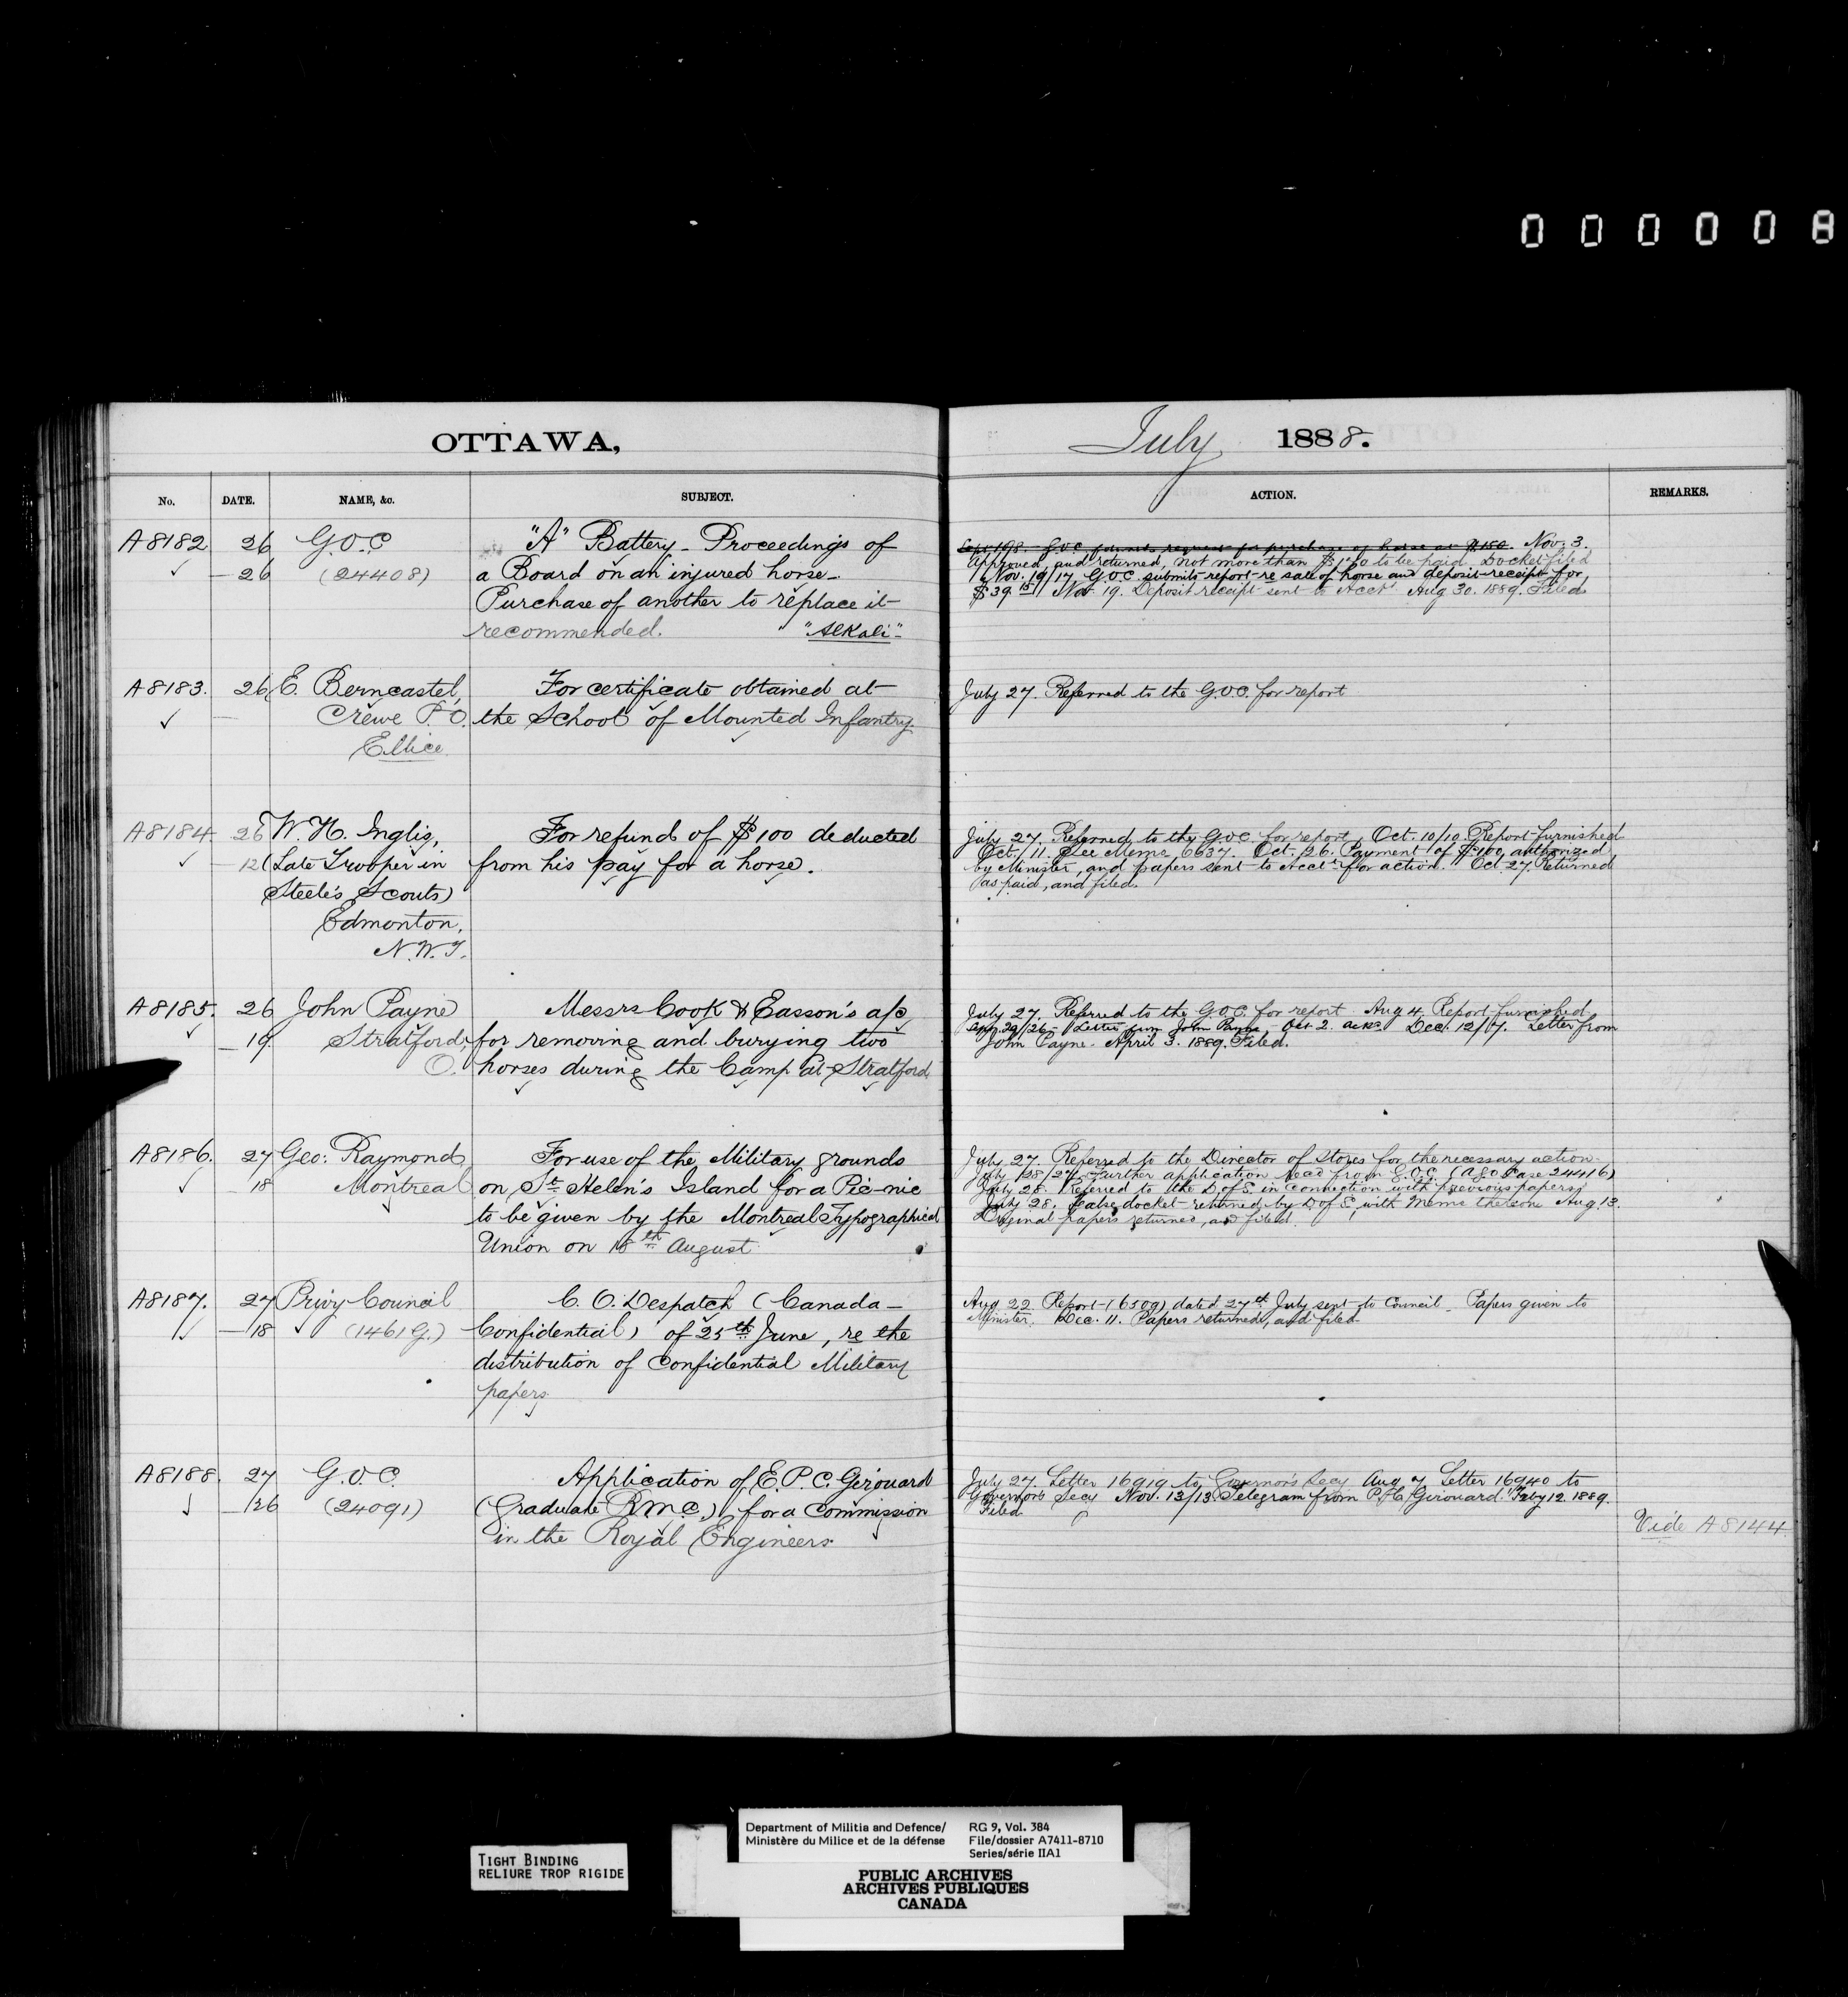 0 0 0 0 0 8
OTTAWA,
July 1888.
No. DATE. NAME, &c. SUBJECT. ACTION. REMARKS.
A8182 26 G.O.C "A" Battery - Proceedings of
26 (24408) a Board on an injured horse.
Purchase of another to replace it
recommended. "Alkali"
Sept 19/8 - G.O.C. forwards request for purchase of horse at $150. Nov. 3.
Approved, and returned, not more than $ to be paid. Docket filed
Nov. 19/17. G.O.C. submits report re sale of horse and deposit-receipt for
$39. Nov. 19. Deposit receipt sent to Acct. Aug 30. 1889. Filed
A8183. 26 E. Berncastel, For certificate obtained at
Crewe P.O. the School of Mounted Infantry
Ellice
July 27. Referred to the G.O.C. for report
A8184 26 W. H. Inglis, For refund of $100 deducted
12 (Late Trooper in from his pay for a horse.
Steele's Scouts)
Edmonton,
N.W.T.
July 27. Referred to the G.O.C. for report. Oct. 10/10. Report furnished
Oct. 11. See Memo 6637. Oct. 26. Payment of $100, authorized
by Minister, and papers sent to Acct. for action. Oct 27. Returned
as paid, and filed.
A8185. 26 John Payne Messrs Cook & Easson's a/c
19. Stratford, for removing and burying two
O. horses during the Camp at Stratford
July 27. Referred to the G.O.C. for report Aug 4. Report furnished
Sept. 29/26 - Letter from John Payne. Oct 2. Ack. Dec. 12/7. Letter from
John Payne. April 3. 1889. Filed.
A8186. 27 Geo: Raymond For use of the Military grounds
18 Montreal on St. Helen's Island for a Pic-nic
to be given by the Montreal Typographical
Union on 18th August
July 27. Referred to the Director of Stores for the necessary action
July 28/27. Further application recd from G.O.C. (A.G.O. Case 24416)
July 28. Referred to the D of S. in connection with previous papers
July 28. False docket returned by D of S, with Memo thereon Aug. 13.
Original papers returned, and filed.
A8187. 27 Privy Council C. O. Despatch (Canada -
18 (1461 G.) Confidential) of 25th June, re the
distribution of Confidential Military
papers.
Aug 22. Report (6509), dated 27th July sent to Council. Papers given to
Minister. Dec. 11. Papers returned, and filed
A8188. 27 G.O.C. Application of E. P. C. Girouard
26 (24091) (Graduate R.M.C.) for a Commission
in the Royal Engineers.
July 27. Letter 16919 to Governor's Secy Aug 7. Letter 16940 to
Governor's Secy Nov. 13/13. Telegram from P.H.C. Girouard. Feby 12. 1889.
Filed
Vide A8144
TIGHT BINDING
RELIURE TROP RIGIDE
Department of Militia and Defence/
Ministère du Milice et de la défense
RG 9, Vol. 384
File/dossier A7411-8710
Series/série IIA1
PUBLIC ARCHIVES
ARCHIVES PUBLIQUES
CANADA